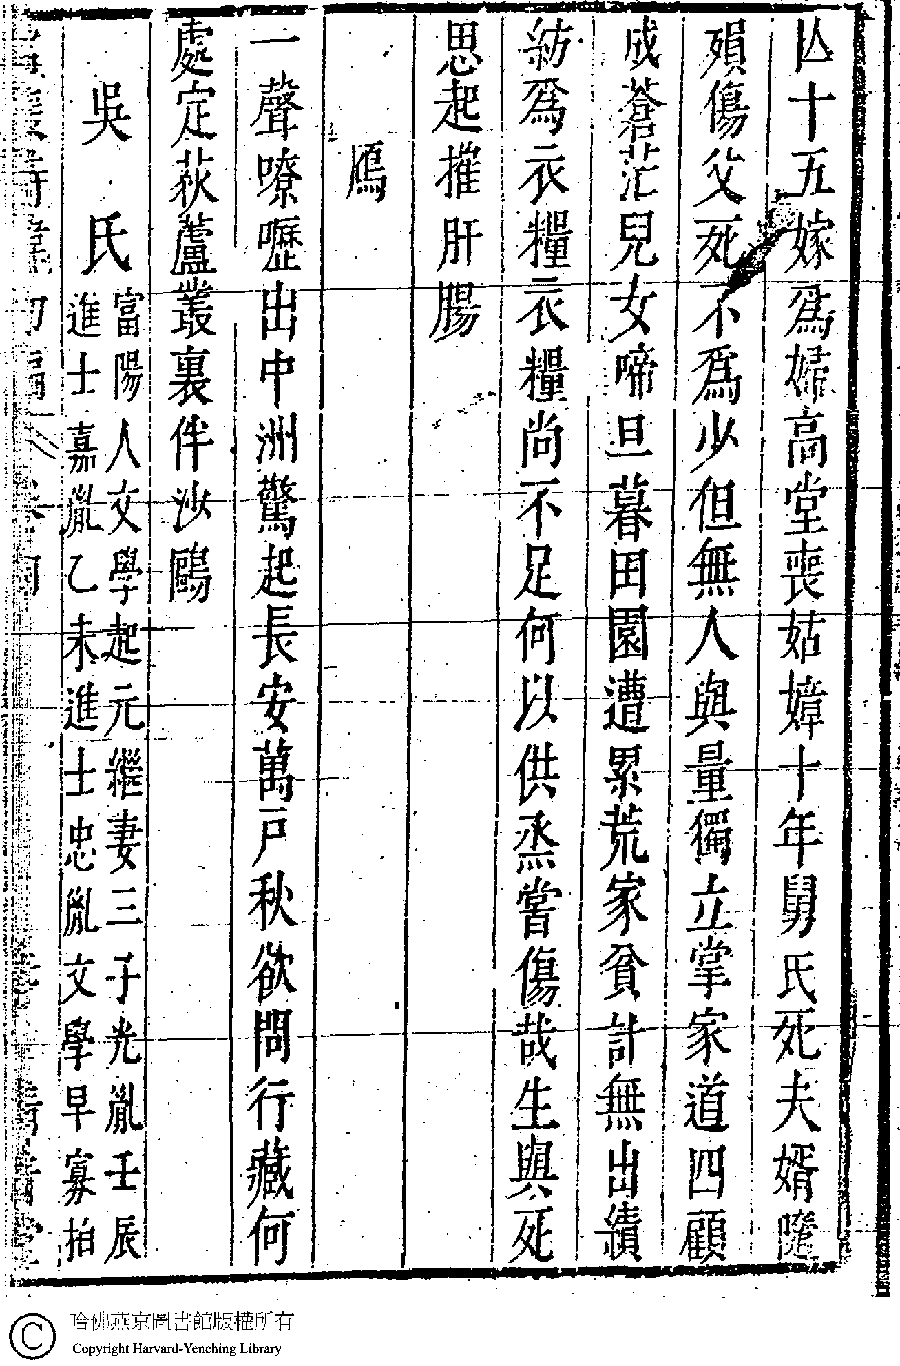 亾十五嫁爲婦高堂喪姑嫜十年舅氏死夫婿隨
殞傷父死不爲少但無人與量獨立掌家道四顧
成蒼茫兒女啼旦暮田園遭累荒家貧計無出績
紡爲衣糧衣糧尚不足何以供烝嘗傷哉生與死
思起摧肝腸
鴈
一聲嘹嚦出中洲驚起長安萬戸秋欲問行藏何
處定荻蘆叢裏伴沙鷗
吳氏
富陽人文學起元繼妻三子光胤壬辰
進士嘉胤乙未進士忠胤文學早寡柏
哈佛燕京圖書館版權所有
Copyright Harvard-Yenching Library